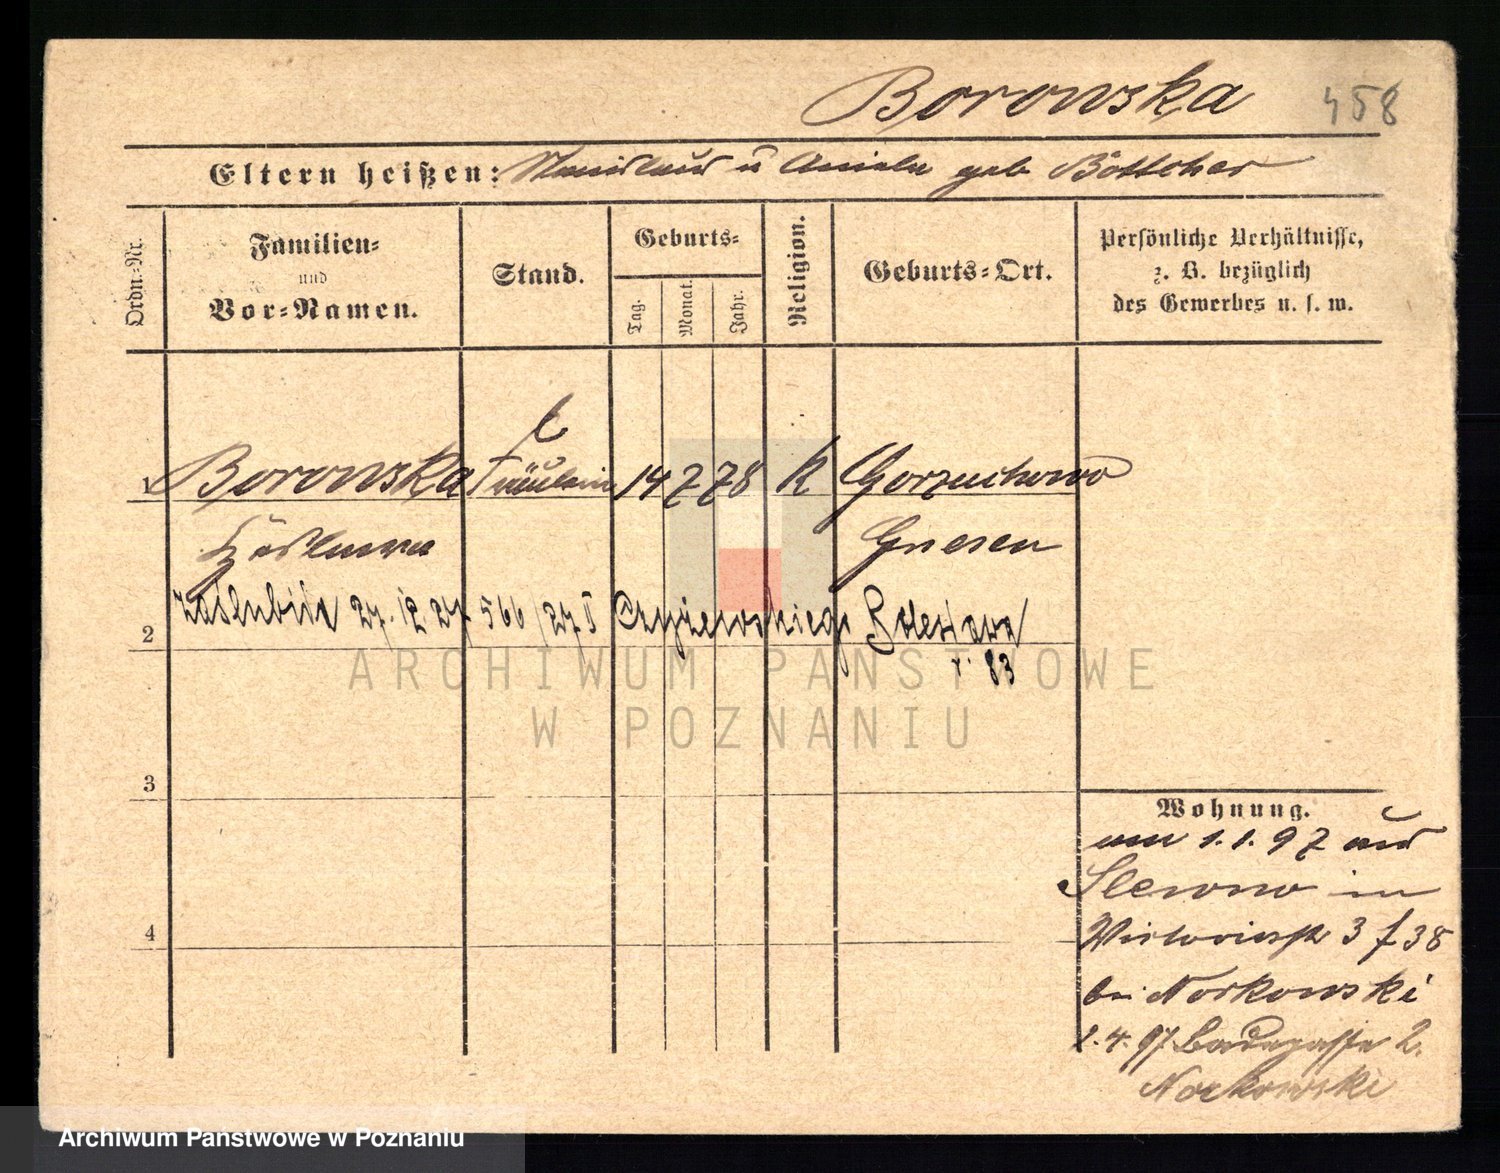 Borowska 458
Eltern heißen: Stanislaus u Aniela geb Böttcher
Ordn.-Nr.
Familien-
und
Vor-Namen.
Stand.
Geburts-
Tag. Monat. Jahr.
Religion.
Geburts-Ort.
Persönliche Verhältnisse,
z. B. bezüglich
des Gewerbes u. s. w.
1 Borowska Fräulein 14 7 78 k Gorzuchowo
Gnesen
2 zaślubiła 27. 12 27 566/27 II Czyżewskiego Bolesława
r. 83
3
4
Wohnung.
am 1.1.97 aus
Slewno in
Victoriastr 3 f 38
bei Norkowski
1.4.97 Badegasse 2.
Norkowski
ARCHIWUM PAŃSTWOWE
W POZNANIU
Archiwum Państwowe w Poznaniu